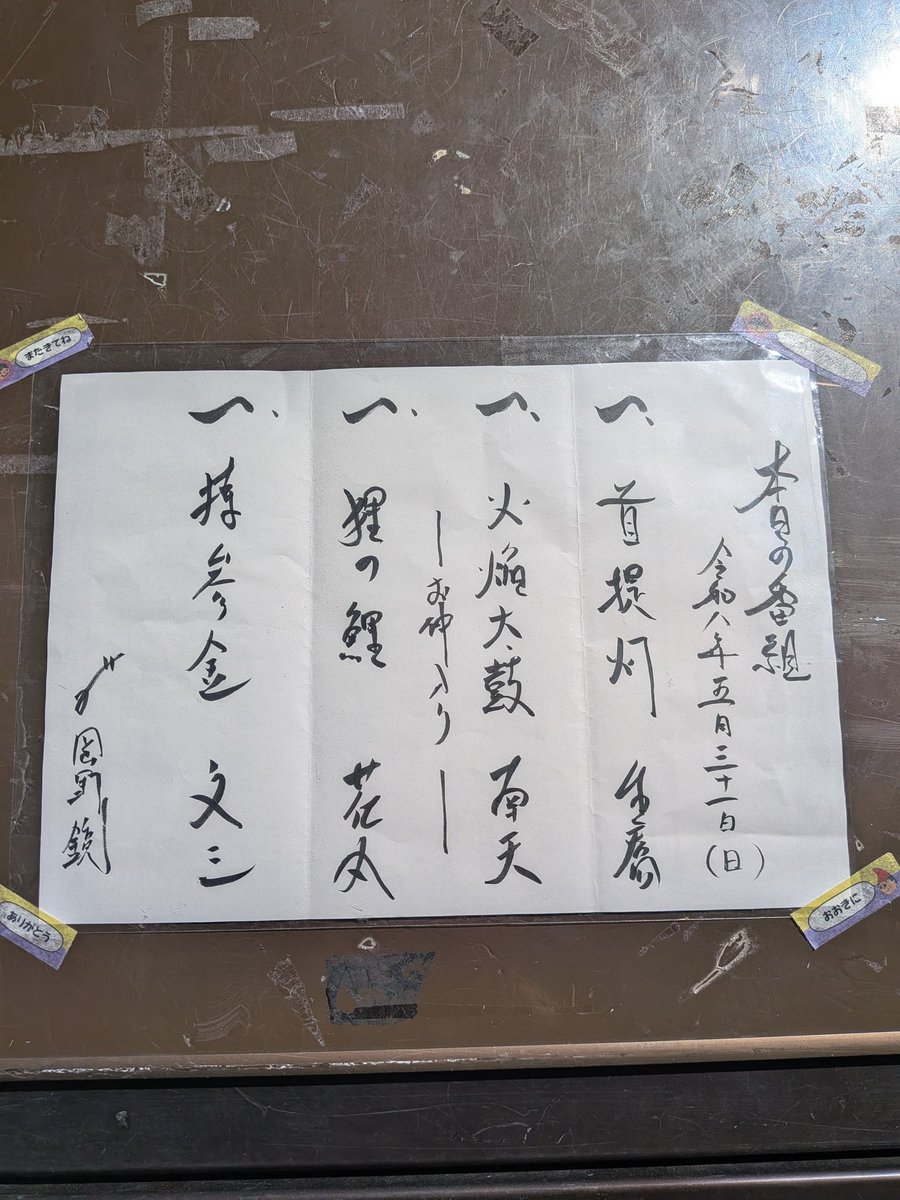 本日の番組
令和八年五月三十一日(日)
一、首提灯 生喬
一、火焔太鼓 南天
―お仲入り―
一、狸の鯉 花丸
一、持参金 文三
岡野鏡
またきてね
ありがとう
おおきに